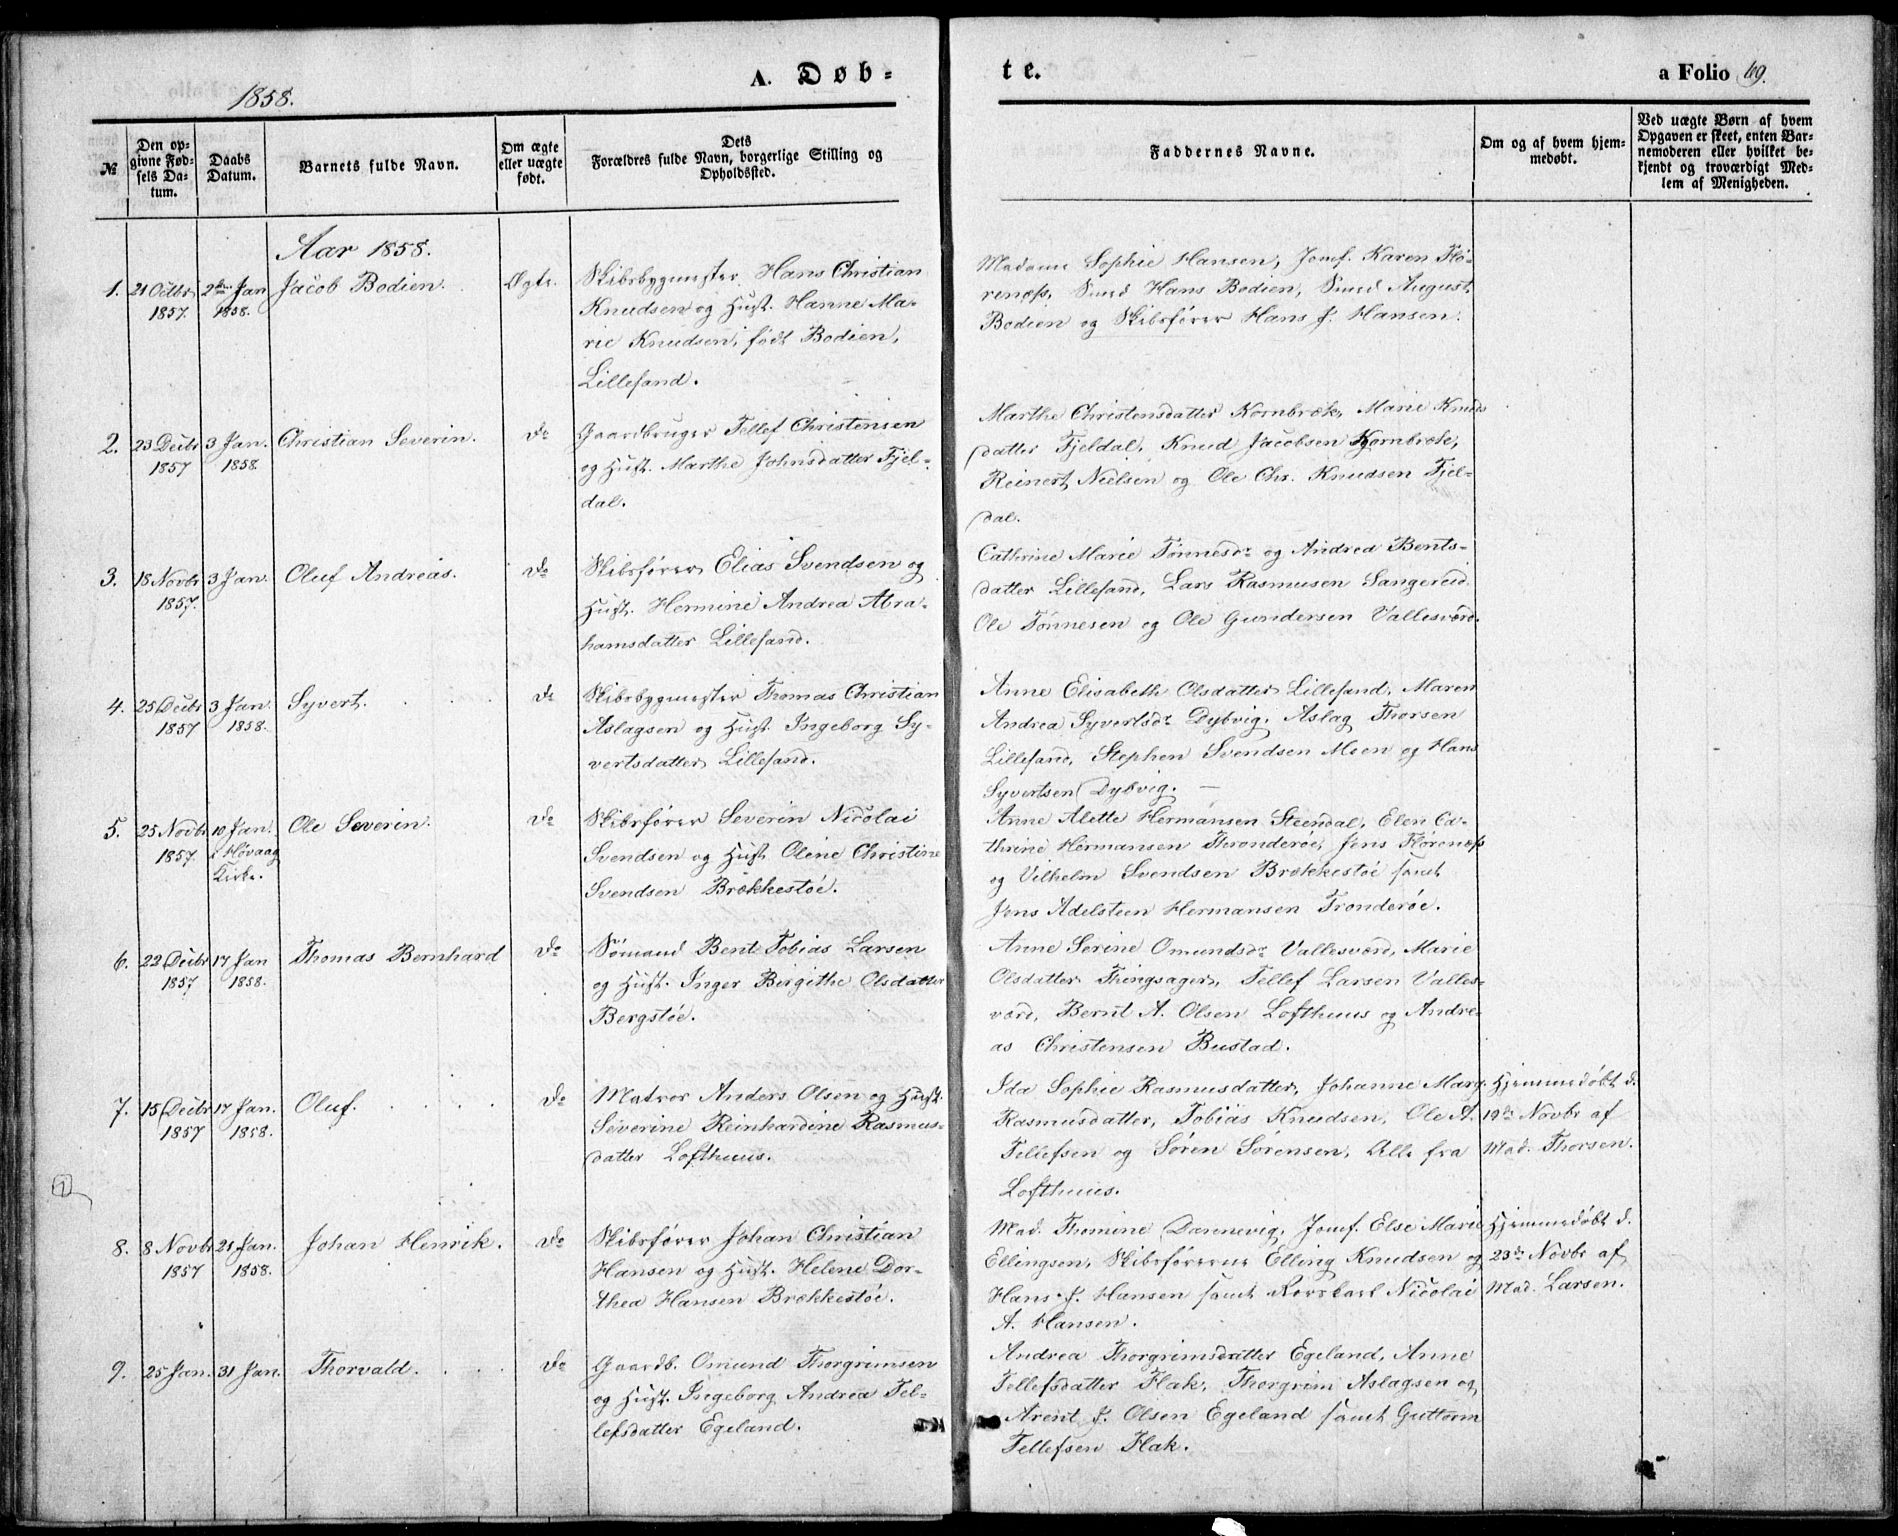 1858.
A. Døb-
te.
a Folio 69.
№
Den op-
givne Fød-
sels Da-
tum.
Daabs
Datum.
Barnets fulde Navn.
Om ægte
eller uægte
født.
Dets
Forældres fulde Navn, borgerlige Stilling og
Opholdssted.
Faddernes Navne.
Om og af hvem hjem-
medøbt.
Ved uægte Børn af hvem
Opgaven er skeet, enten Bar-
nemoderen eller hvilket be-
kjendt og troværdigt Med-
lem af Menigheden.
Aar 1858.
1.
21 Octbr
1857.
2den Jan
1858.
Jacob Bodien.
Ægte.
Skibsbygmester Hans Christian
Knudsen og Hust. Hanne Ma-
rie Knudsen, født Bodien,
Lillesand.
Madame Sophie Hansen, Jomf. Karen Flø-
renæss, Smed Hans Bodien, Smed August
Bodien og Skibsfører Hans J. Hansen.
2.
23 Decbr
1857
3 Jan.
1858.
Christian Severin.
Do
Gaardbruger Tellef Christensen
og Hust. Marthe Johnsdatter Fjel-
dal.
Marthe Christensdatter Kornbræk, Marie Knuds
datter Fjeldal, Knud Jacobsen Kornbræk,
Reinert Nielsen og Ole Chr. Knudsen Fjel-
dal.
3.
18 Novbr
1857.
3 Jan.
Oluf Andreas.
Do
Skibsfører Elias Svendsen og
Hust. Hermine Andrea Abra-
hamsdatter Lillesand.
Cathrine Marie Tønnesdr og Andrea Bents-
datter Lillesand, Lars Rasmusen Sangereid
Ole Tønnesen og Ole Gundersen Vallesværd.
4.
25 Decbr
1857
3 Jan.
1858.
Syvert.
Do
Skibsbygmester Thomas Christian
Aslagsen og Hust. Ingeborg Sy-
vertsdatter Lillesand.
Anne Elisabeth Olsdatter Lillesand, Maren
Andrea Syvertsdr Dybvig, Aslag Thorsen
Lillesand, Stephen Svendsen Moen og Hans
Syvertsen Dybvig. —
5.
25 Novbr
1857.
10 Jan.
i Høvaag
Kirke.
Ole Severin.
Do
Skibsfører Severin Nicolai
Svendsen og Hust. Olene Christine
Svendsen Brækkestøe.
Anne Alette Hermansen Steendal, Elen Ca-
thrine Hermansen Thronderøe, Jens Flørenæss
og Vilhelm Svendsen Brækkestøe samt
Jens Adelsteen Hermansen Tronderøe.
6.
22 Decbr
1857
17 Jan
1858.
Thomas Bernhard
Do
Sømand Bent Tobias Larsen
og Hust. Inger Birgithe Olsdatter
Bergstøe.
Anne Serine Omundsdr Vallesværd, Marie
Olsdatter Thingsager, Tellef Larsen Valles-
værd, Bernt A. Olsen Lofthuus og Andre-
as Christensen Bustad.
7.
15 Decbr
1857
17 Jan.
1858.
Oluf.
Do
Matros Anders Olsen og Hust.
Severine Reinhardine Rasmus-
datter Lofthuus.
Ida Sophie Rasmusdatter, Johanne Marg.
Rasmusdatter, Tobias Knudsen, Ole A.
Tellefsen og Søren Sørensen, Alle fra
Lofthuus.
Hjemmedøbt d.
19de Novbr af
Mad. Thorsen.
8.
8 Novbr
1857
21 Jan.
1858.
Johan Henrik.
Do
Skibsfører Johan Christian
Hansen og Hust. Helene Dor-
thea Hansen Brækkestøe.
Mad. Thomine Dannevig, Jomf. Else Marie
Ellingsen, Skibsførerne Elling Knudsen og
Hans J. Hansen samt Nicolai
A. Hansen.
Hjemmedøbt d.
23de Novbr af
Mad. Larsen.
9.
25 Jan.
31 Jan.
Thorvald.
Do
Gaardb. Omund Thorgrimsen
og Hust. Ingeborg Andrea Tel-
lefsdatter Egeland.
Andrea Thorgrimsdatter Egeland, Anne
Tellefsdatter Flak, Thorgrim Aslagsen og
Arent J. Olsen Egeland samt Guttorm
Tellefsen Flak.